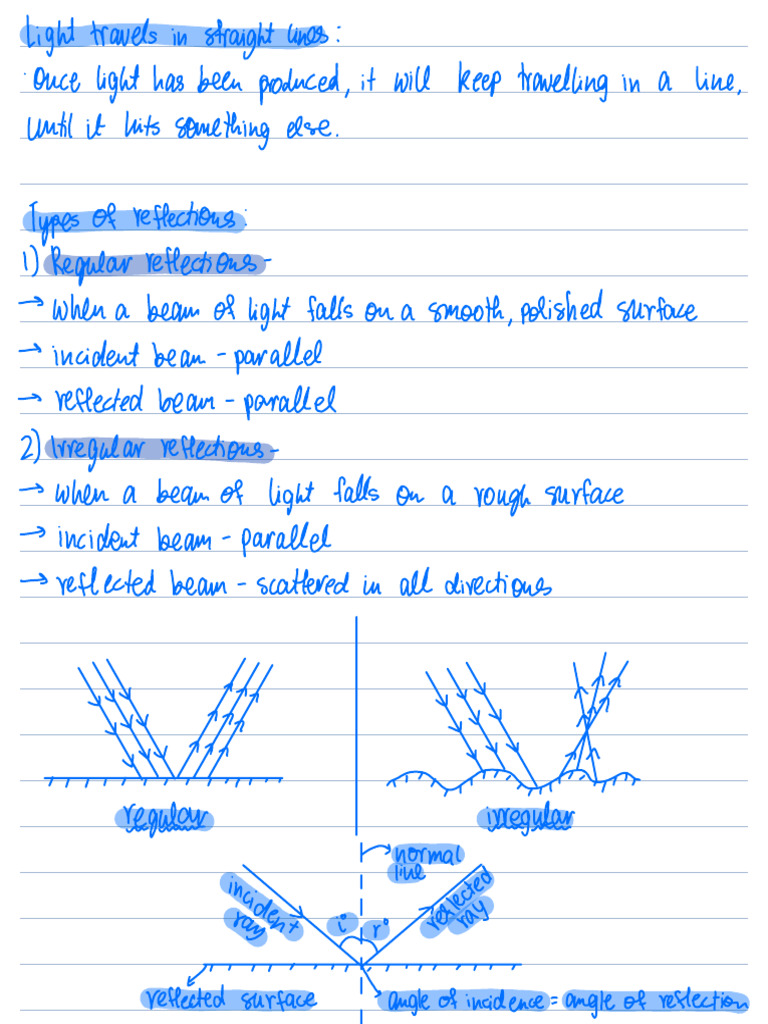 Light travels in straight lines:
· Once light has been produced, it will keep travelling in a line,
until it hits something else.
Types of reflections:
1) Regular reflections-
→ when a beam of light falls on a smooth, polished surface
→ incident beam - parallel
→ reflected beam - parallel
2) Irregular reflections-
→ when a beam of light falls on a rough surface
→ incident beam - parallel
→ reflected beam - scattered in all directions
regular
irregular
normal
line
incident
ray
i°
r°
reflected
ray
reflected surface
angle of incidence = angle of reflection